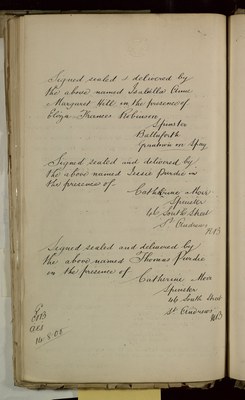 Signed sealed & delivered by
the above named Isabella Anne
Margaret Hill in the presence of
Eliza Frances Robinson
Spinster
Grantown on Spey
Signed sealed and delivered by
the above named Jessie Purdie in
the presence of
Catherine Moir
Spinster
46 South Street
St Andrews
Signed sealed and delivered by
the above named Thomas Purdie
in the presence of
Catherine Moir
Spinster
46 South Street
St Andrews